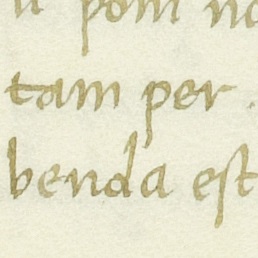 pom no
tam per.
benda est